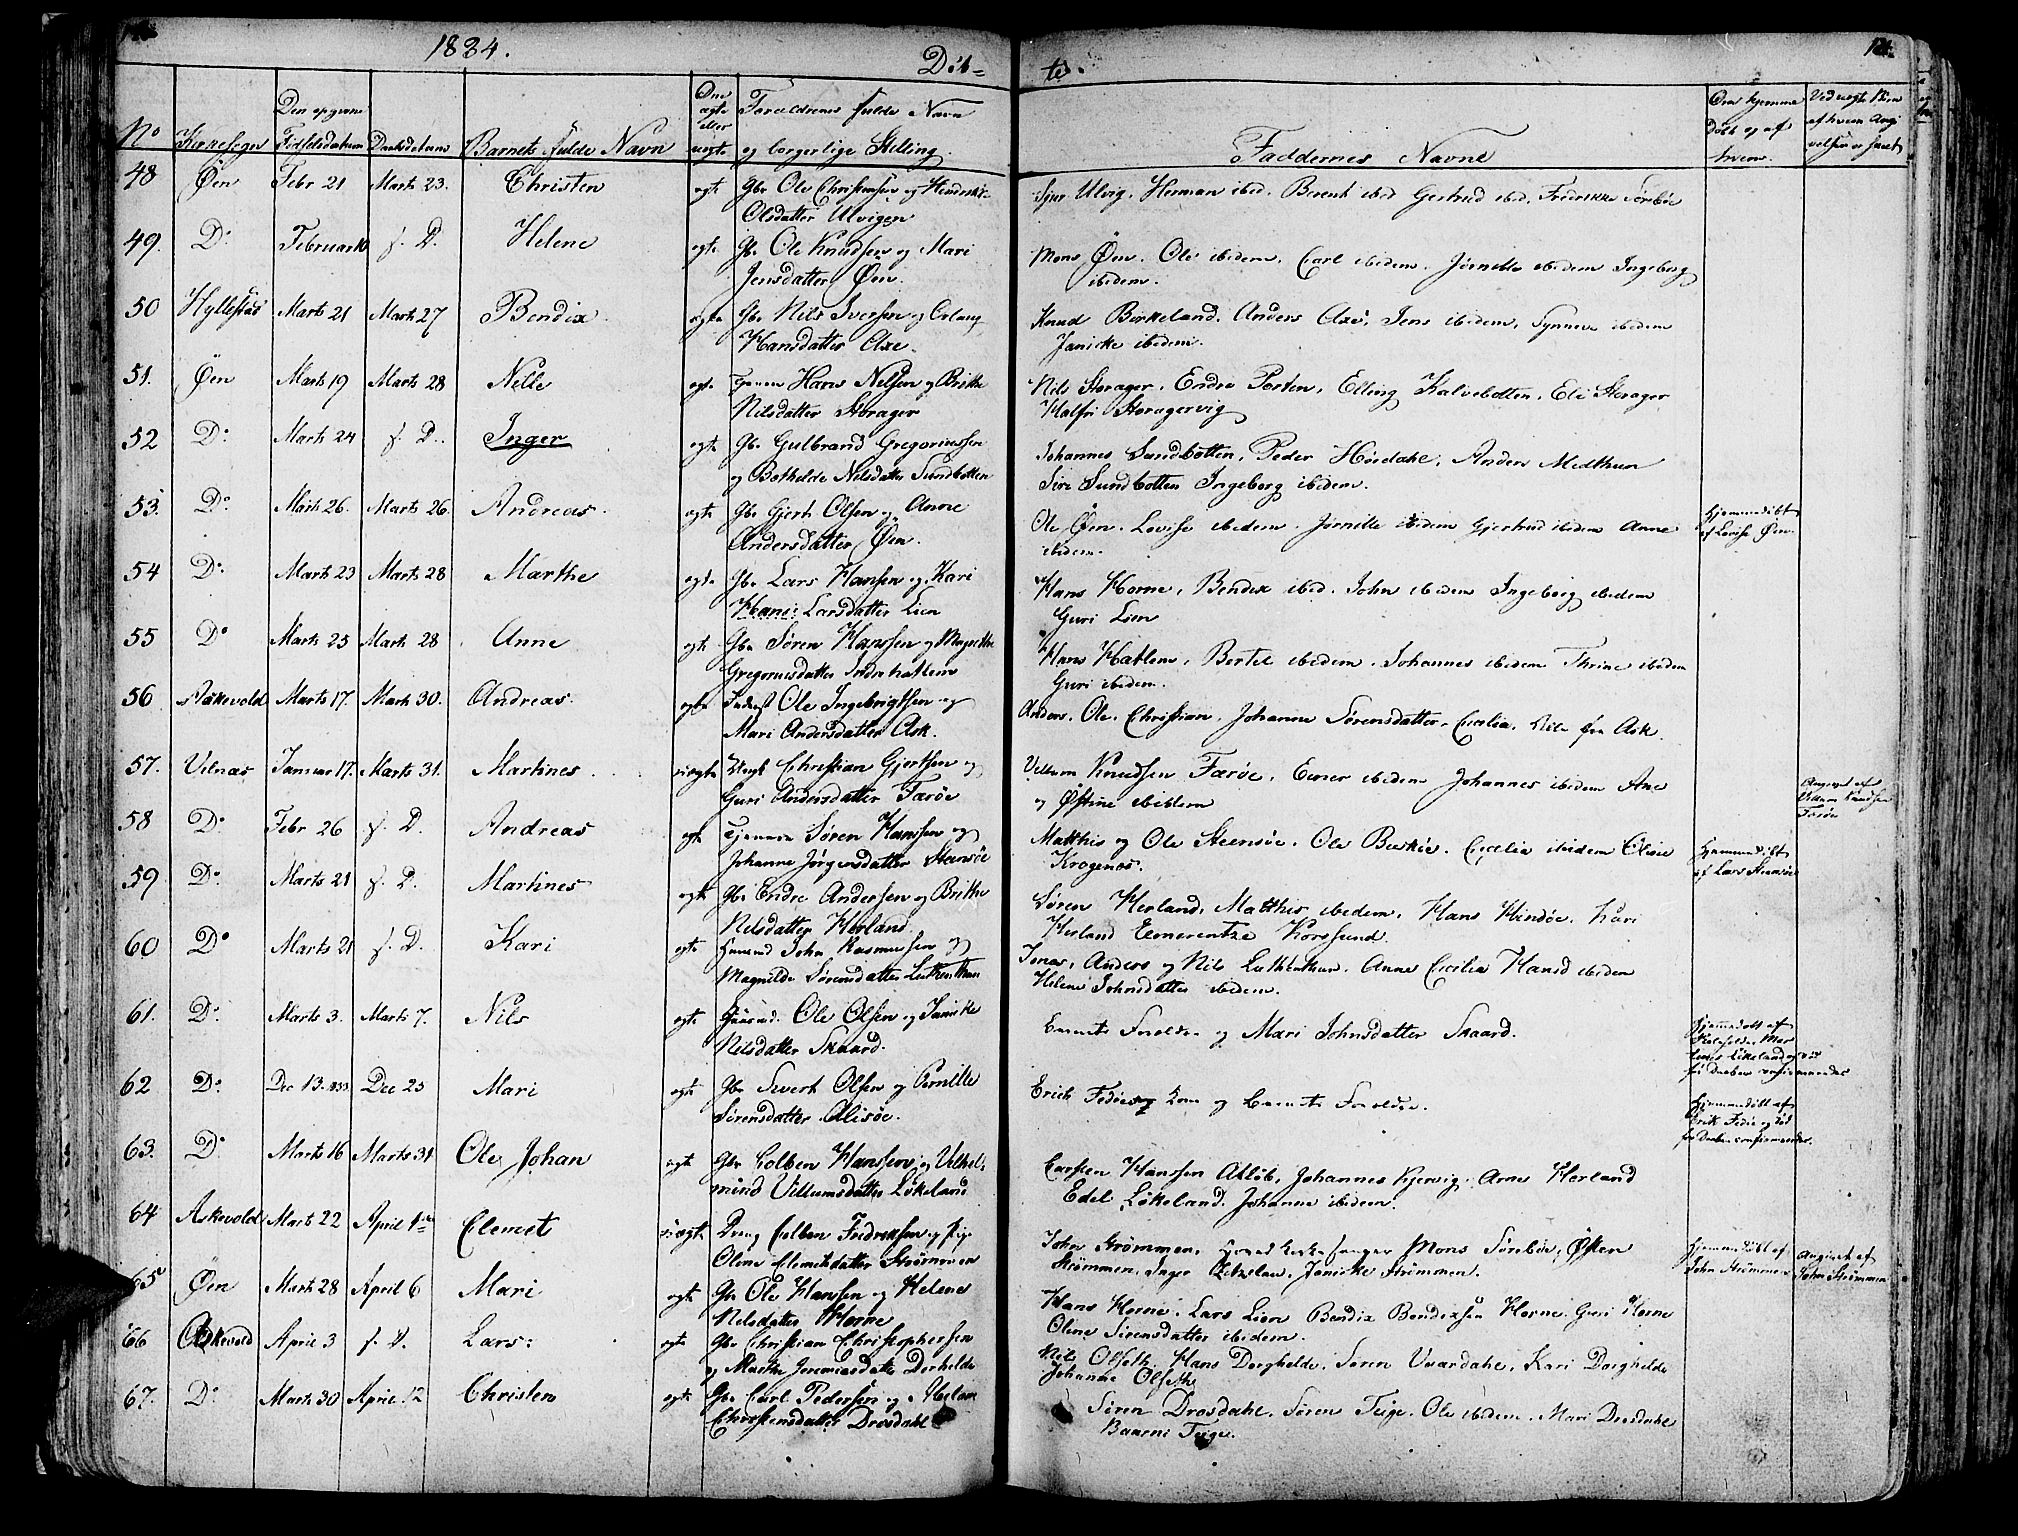 1834.
Döb=
te.
121.
No
Kirkesogn
Den opgivne Födselsdatum
Daabsdatum
Barnets fulde Navn
Om ægte eller uægte
Forældrenes fulde Navn og borgerlige Stilling.
Faddernes Navne
Om hjemme Döbt og af hvem.
Ved uægte Börn af hvem Angivelsen er skeet
48 Öen Febr 21 Marts 23. Christen ægte Gbr Ole Christensen og
Olsdatter Ulvigen
Sjur Ulvig. Herman ibid. Berent ibid Gertrud ibid. Fredrikke Sörböe
49. Do Februar f. D. Helene ægte Gbr Ole Knudsen og Mari
Jensdatter Öen.
Mons Öen. Ole ibidem. Carl ibidem. Jörnille ibidem Ingeborg
ibidem.
50 Hyllestad Marts 21 Marts 27 Bendix. ægte Gbr Nils Iversen og
Hansdatter Axe.
Knud Birkeland. Anders Axe, Jens ibidem, Synneve ibidem
Janicke ibidem.
51. Öen Marts 19 Marts 28 Nille ægte Hans Nelsen og Brithe
Nilsdatter Storager
Nils Storager. Endre Porten, Elling Kalvebotten. Eli Storager
Storagervig
52 Do Marts 24 f. D. Inger ægte Gbr Gulbrand Gregoriussen
og Bothilde Nilsdatter Sundbotten
Johannes Sundbotten, Peder Höidahl, Anders Midthun
Siri Sundbotten Ingeborg ibidem.
53. Do Marts 26. Marts 26. Andreas. ægte Gbr Gjert Olsen og Anne
Andersdatter Öen.
Ole Öen. Lovise ibidem. Jörnille ibidem Gjertrud ibidem Anne
ibidem.
Hjemmedöbt
af Lovise Öen.
54 Do Marts 23 Marts 28 Marthe ægte Gbr Lars Hansen og Kari
Larsdatter Lien
Hans Horne, Bendix ibid. John ibidem Ingeborg ibidem
Guri Lien
55 Do Marts 25 Marts 28 Anne ægte Gbr Sören Hanssen og
Gregoriusdatter Indrehatlem
Hans Hatlem, Bertel ibidem. Johannes ibidem Thrine ibidem
Guri ibidem.
56 Askevold Marts 17. Marts 30. Andreas. ægte Ole Ingebrigtsen og
Mari Andersdatter Ask.
Anders. Ole. Christian. Johanne Sörensdatter. Cecilia. fra Ask
57. Vilnæs Januar 17. Marts 31. Martines uægte Christian Gjertsen og
Guri Andersdatter Færöe
Villum Knudsen Færöe, Einer ibidem Johannes ibidem Ane
og Östine ibidem
Angivet af
Villum Knudsen
Færöe
58 Do Febr 26 f. D. Andreas ægte Sören Hanssen og
Johanne Jörgensdatter Steensöe
Matthis og Ole Steensöe. Ole Cecilia ibidem Olive
Kragenæs.
Hjemmedöbt
af Lars Steensöe
59 Do Marts 21 f. D. Martines ægte Gbr Endre Andersen og Brithe
Nilsdatter Herland.
Sören Herland, Matthis ibidem, Hans Hindöe. Kari
Herland Emerentze Korssund.
60 Do Marts 21 f. D. Kari ægte Huusmd John Rasmussen og
Magnilde Sörensdatter Lutkenthun
Jonas, Anders og Nils Lutkenthun. Anne Cecilia Hansd ibidem
Helene Johnsdatter ibidem.
61. Do Marts 3. Marts 7. Nils ægte Huusmd. Ole Olsen og Janikke
Nilsdatter Skaard.
Barnets Foreldre og Mari Johnsdatter Skaard.
Hjemmedöbt af
Lökeland og död
för Daaben confirmeredes
62 Do Dec 13. 1833 Dec 25 Mari ægte Gbr Sivert Olsen og Pernille
Sörensdatter Alisöe.
Erich Fedöe og Kone og Barnets Foreldre.
Hjemmedöbt af
Erik Fedöe og död
för Daaben confirmeredes.
63. Do Marts 16 Marts 31 Ole Johan ægte Gbr Colben Hanssen og Vilhel-
mine Villumsdatter Lökeland
Carsten Hanssen Atlöb. Johannes Kjervig. Arne Herland
Edel Lökeland. Johanne ibidem.
64 Askevold Marts 22 April 1ste Clemet uægte Dreng Colben Fredriksen og Pige
Oline Clemetsdatter Strömmen
John Strömmen, Mons Sörböe, Östen
Strömmen. Inger Janicke Strömmen.
Hjemmedöbt af
John Strömmen
Angivet af
John Strömmen
65 Öen Marts 28 April 6 Mari ægte Gbr Ole Hanssen og Helene
Nilsdatter Horne
Hans Horne. Lars Lien Bendix Bendixsen Horne. Guri Horne
Oline Sörensdatter ibidem.
66 Askevold April 3 f. D. Lars: ægte Gbr Christian Christophersen
og Marthe Jeremiasdatter Dorhelde
Nils Olseth. Hans Dorghelde. Sören Vaardahl, Kari Dorghelde
Johanne Olseth
67. Do Marts 30 April 12 Christen ægte Gbr Carl Pedersen og Helene
Christensdatter Drosdahl
Sören Drosdahl. Sören Teige. Ole ibidem. Mari Drosdahl
Teige.